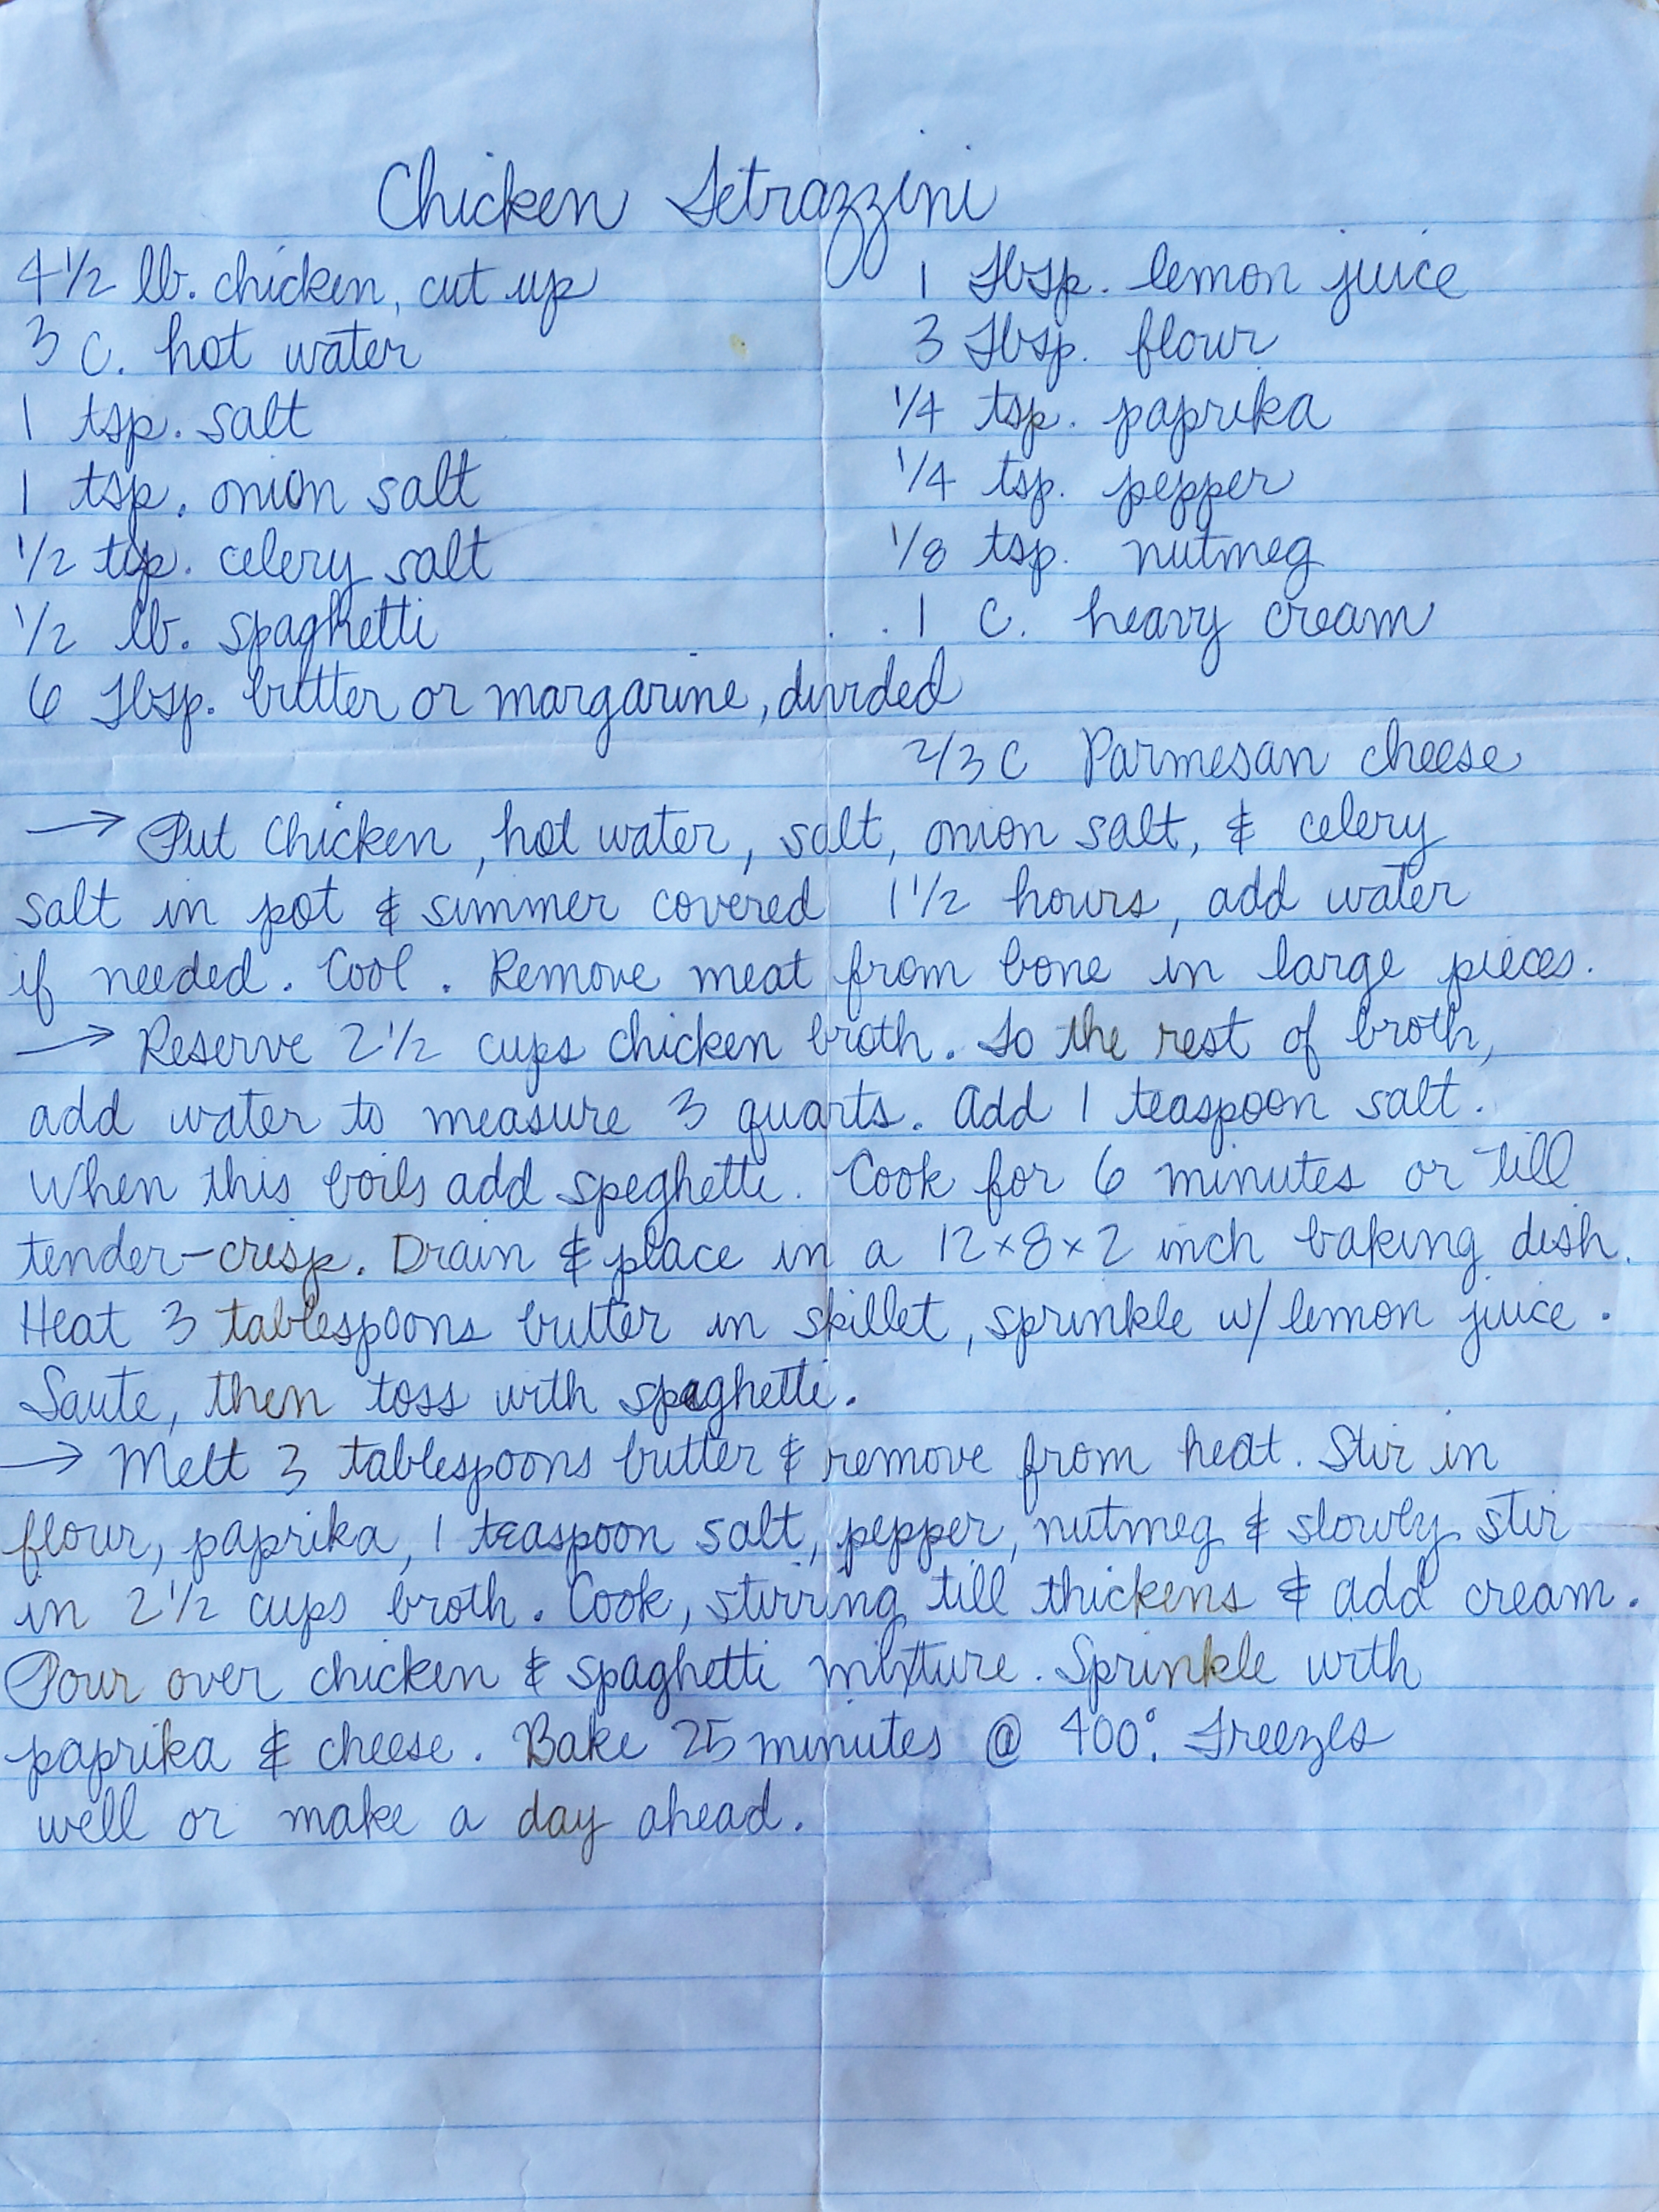 Chicken Tetrazzini
4 1/2 lb. chicken, cut up
3 C. hot water
1 tsp. salt
1 tsp. onion salt
1/2 tsp. celery salt
1/2 lb. spaghetti
6 Tbsp. butter or margarine, divided
1 Tbsp. lemon juice
3 Tbsp. flour
1/4 tsp. paprika
1/4 tsp. pepper
1/8 tsp. nutmeg
1 C. heavy cream
2/3 C Parmesan cheese
→ Put Chicken, hot water, salt, onion salt, & celery
salt in pot & simmer covered 1 1/2 hours, add water
if needed. Cool. Remove meat from bone in large pieces.
→ Reserve 2 1/2 cups chicken broth. To the rest of broth,
add water to measure 3 quarts. Add 1 teaspoon salt.
When this boils add speghetti. Cook for 6 minutes or till
tender-crisp. Drain & place in a 12x8x2 inch baking dish.
Heat 3 tablespoons butter in skillet, sprinkle w/ lemon juice.
Saute, then toss with spaghetti.
→ Melt 3 tablespoons butter & remove from heat. Stir in
flour, paprika, 1 teaspoon salt, pepper, nutmeg & slowly stir
in 2 1/2 cups broth. Cook, stirring till thickens & add cream.
Pour over chicken & spaghetti mixture. Sprinkle with
paprika & cheese. Bake 25 minutes @ 400°. Freezes
well or make a day ahead.